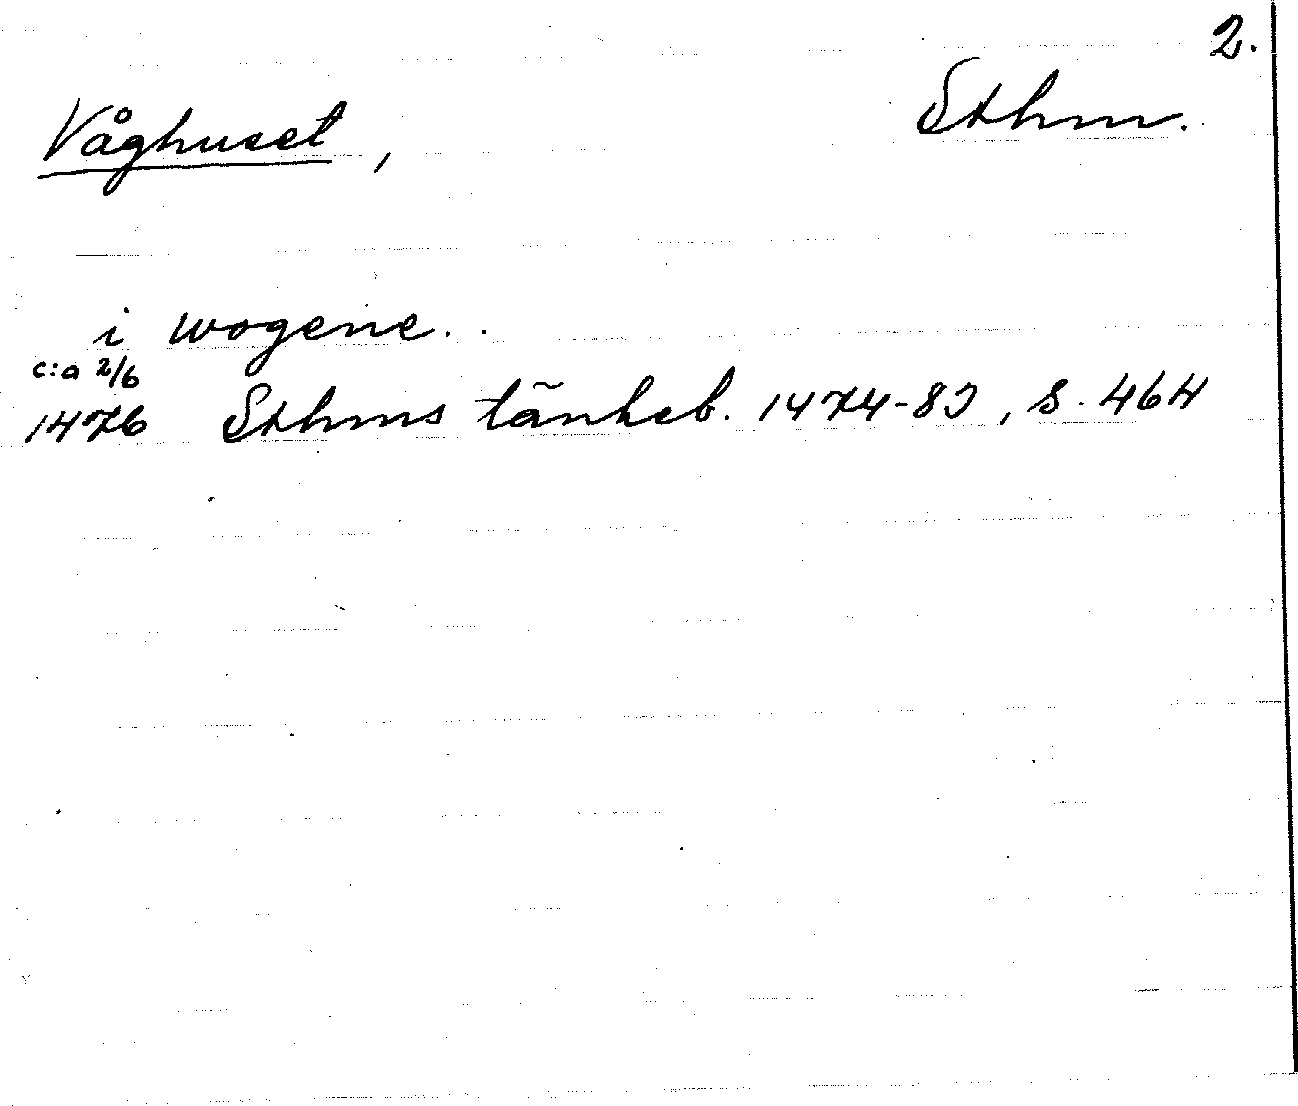 2.
Våghuset, Sthm.
i wogene..
c:a 2/6
1476 Sthms tänkeb. 1474-83, s. 464